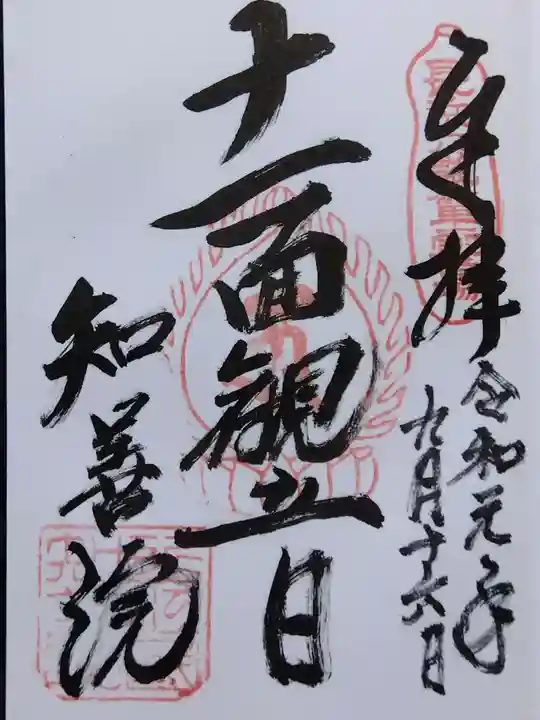 奉拝
令和元年
九月十六日
十一面観音
知善院